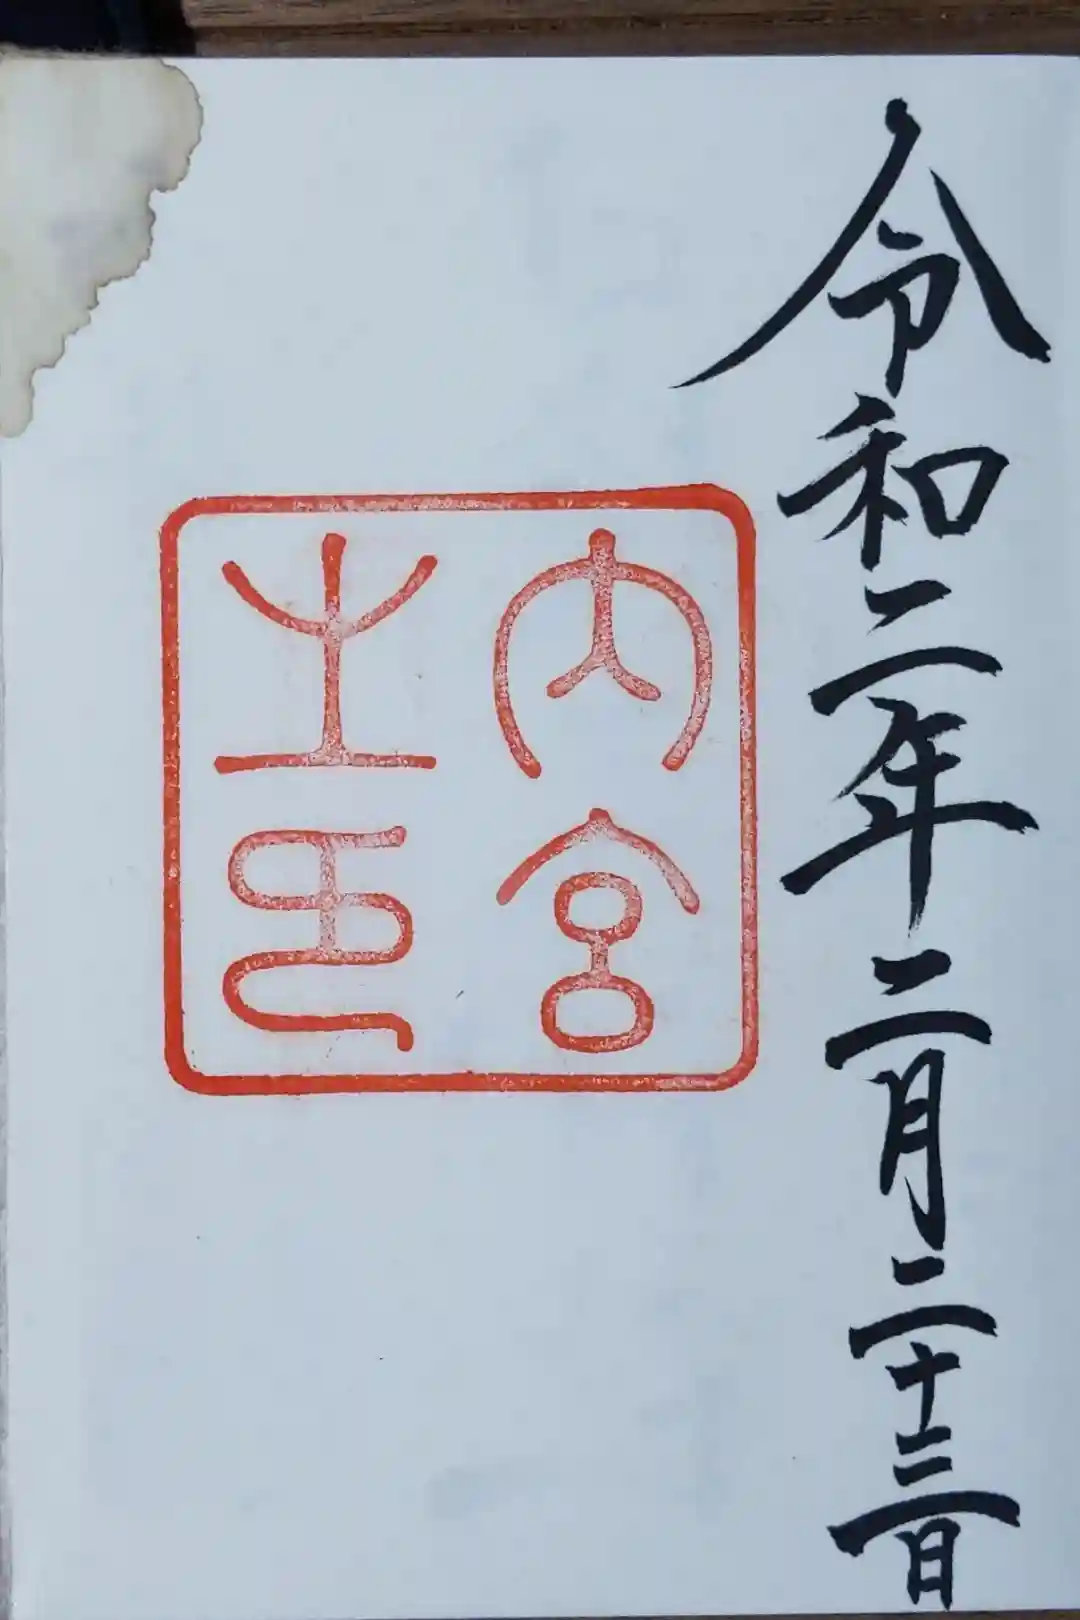 令和二年二月二十三日
内宮
之印